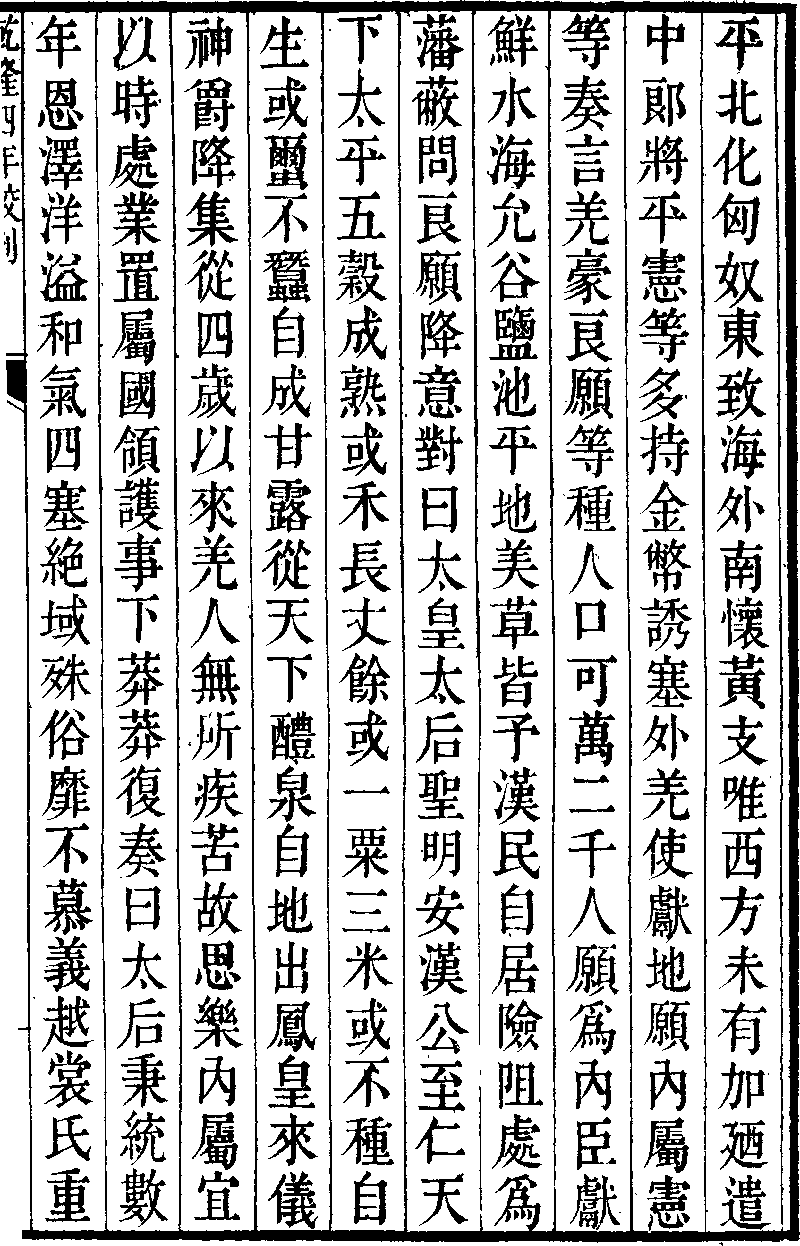 平北化匈奴東致海外南懷黃支唯西方未有加廼遣
中郎將平憲等多持金幣誘塞外羌使獻地願內屬憲
等奏言羌豪良願等種人口可萬二千人願爲內臣獻
鮮水海允谷鹽池平地美草皆予漢民自居險阻處爲
藩蔽問良願降意對曰太皇太后聖明安漢公至仁天
下太平五穀成熟或禾長丈餘或一粟三米或不種自
生或壐不蠶自成甘露從天下醴泉自地出鳳皇來儀
神爵降集從四歲以來羌人無所疾苦故思樂內屬宜
以時處業置屬國領護事下莽莽復奏曰太后秉統數
年恩澤洋溢和氣四塞絶域殊俗靡不慕義越裳氏重
乾隆四年校刋